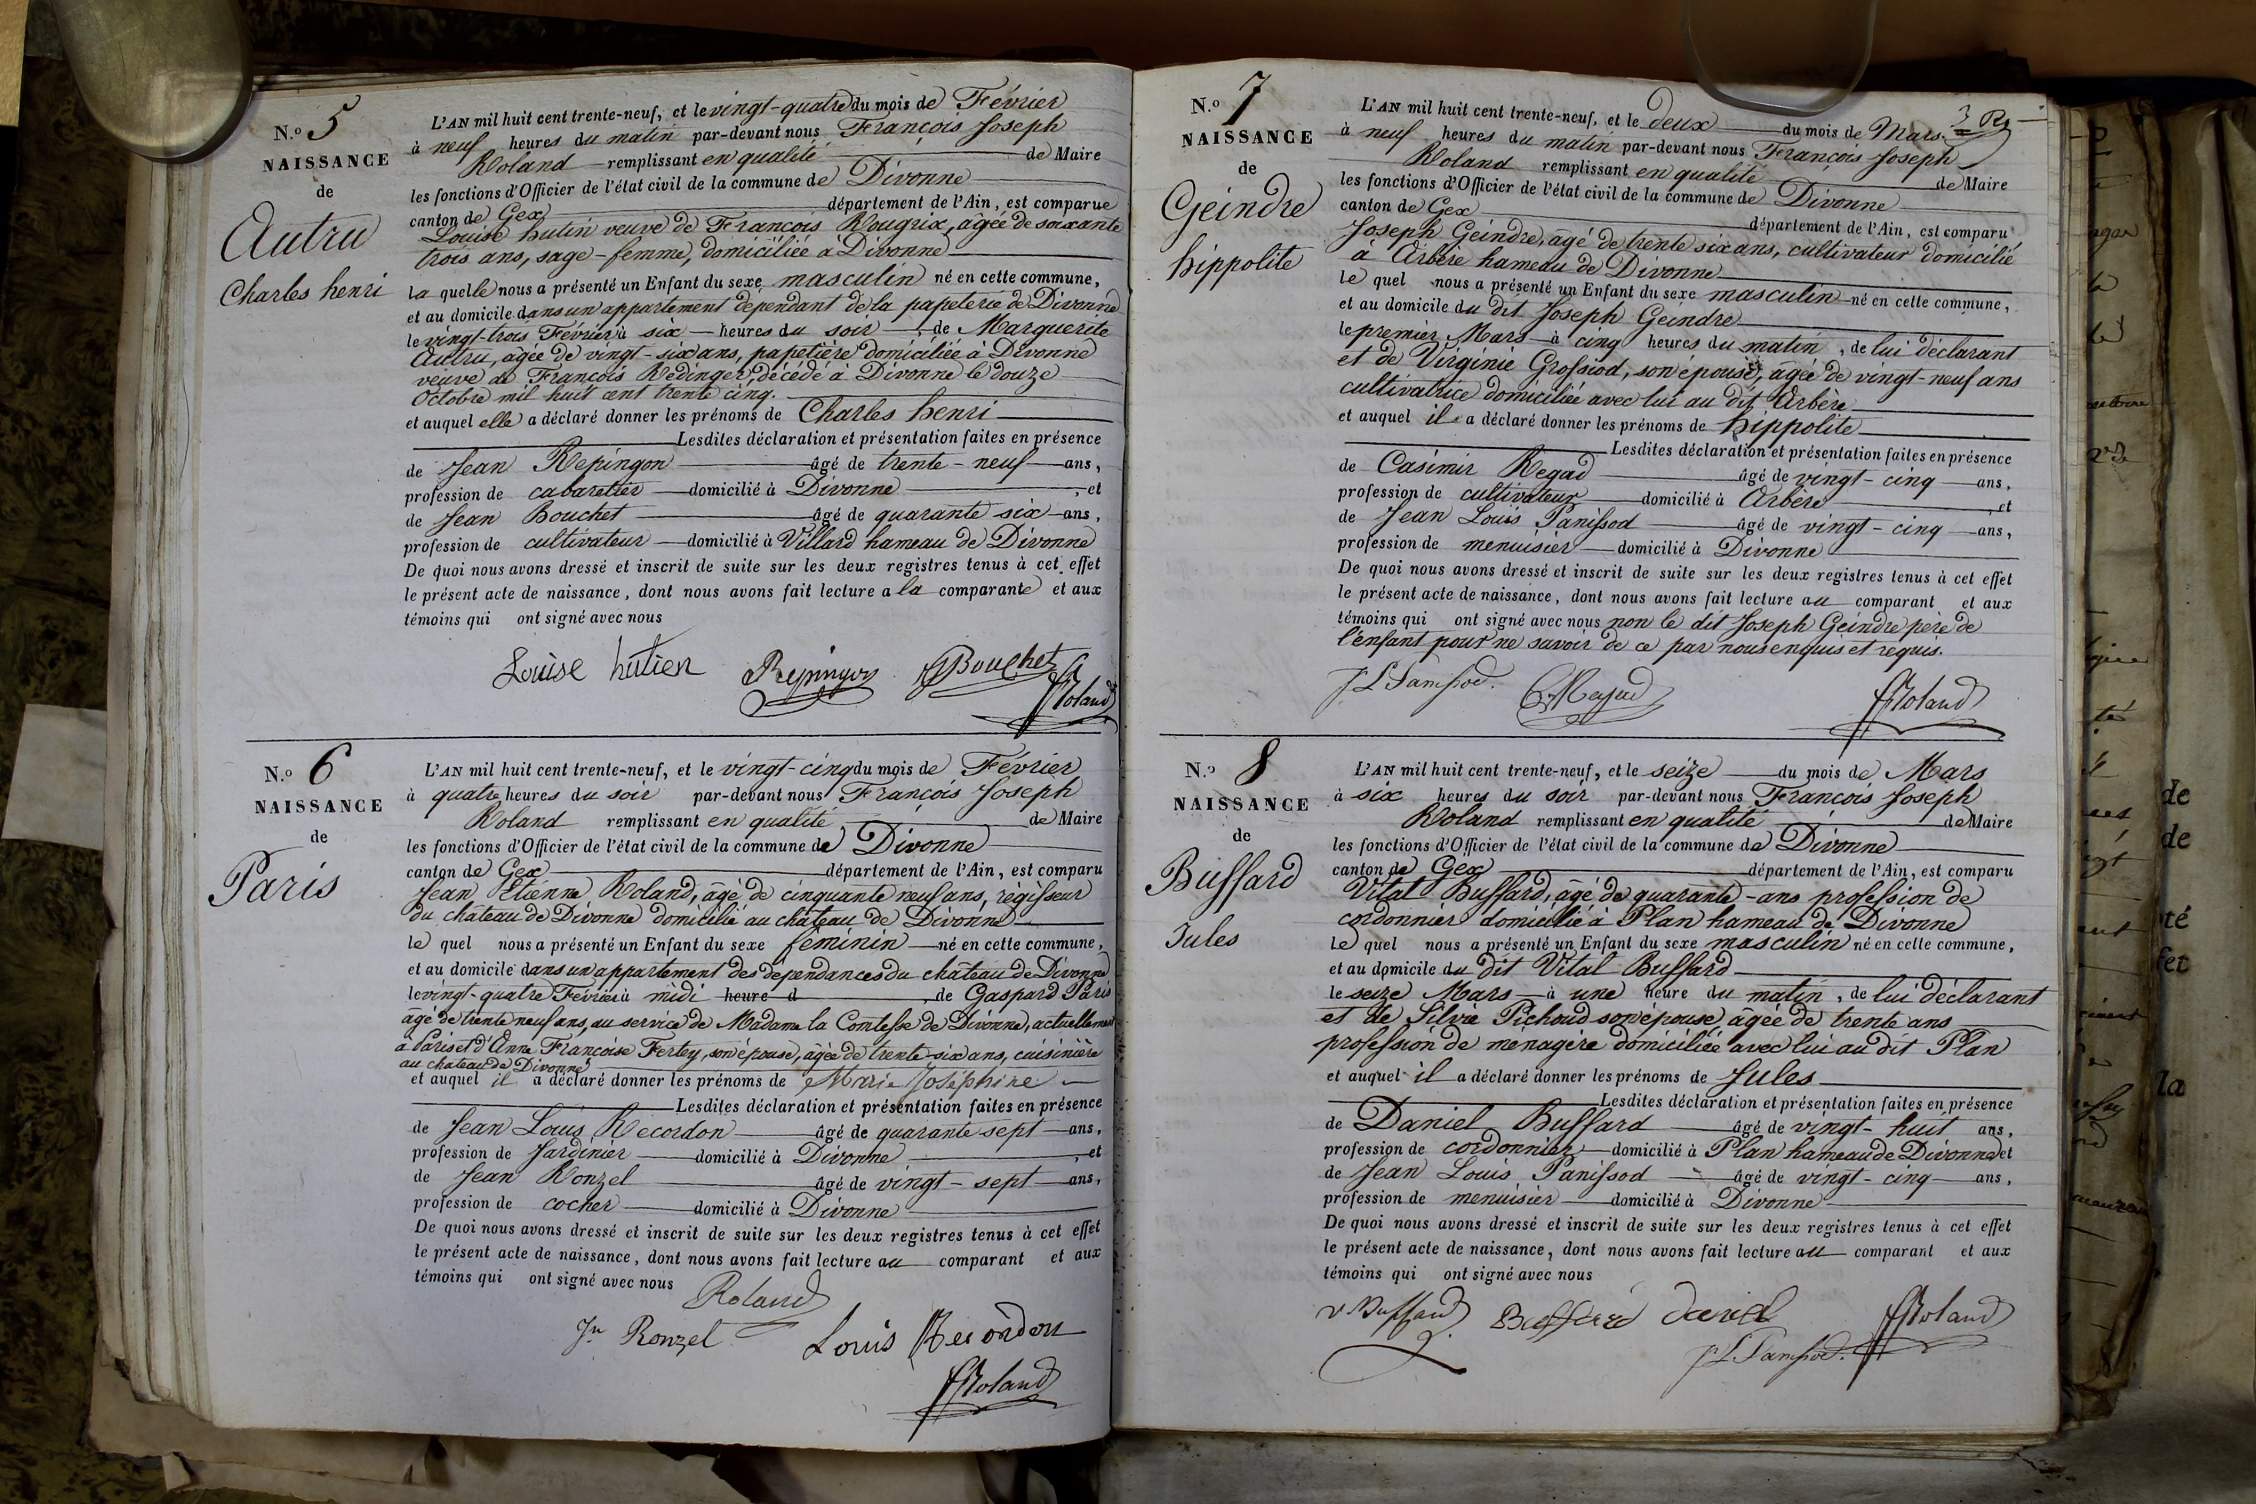 N.o 5
NAISSANCE
de
Autru
Charles henri
L'AN mil huit cent trente-neuf, et le vingt-quatre du mois de Février
à neuf heures du matin par-devant nous François Joseph
Roland remplissant en qualité de Maire
les fonctions d'Officier de l'état civil de la commune de Divonne
canton de Gex département de l'Ain, est comparue
Louise hutin veuve de François Rougrix, âgée de soixante
trois ans, sage-femme, domiciliée à Divonne
la quelle nous a présenté un Enfant du sexe masculin né en cette commune,
et au domicile dans un appartement dépendant de la papeterie de Divonne
le vingt-trois Février à six heures du soir, de Marguerite
Autru, âgée de vingt-six ans, papetière domiciliée à Divonne
veuve de François Redinger, décédé à Divonne le douze
Octobre mil huit cent trente cinq.
et auquel elle a déclaré donner les prénoms de Charles henri
Lesdites déclaration et présentation faites en présence
de Jean Repingon âgé de trente-neuf ans,
profession de cabaretier domicilié à Divonne, et
de Jean Bouchet âgé de quarante six ans,
profession de cultivateur domicilié à Villard hameau de Divonne
De quoi nous avons dressé et inscrit de suite sur les deux registres tenus à cet effet
le présent acte de naissance, dont nous avons fait lecture a la comparante et aux
témoins qui ont signé avec nous
Louise hutien Repingon JBouchet
FRoland
N.o 6
NAISSANCE
de
Paris
L'AN mil huit cent trente-neuf, et le vingt-cinq du mois de Février
à quatre heures du soir par-devant nous François Joseph
Roland remplissant en qualité de Maire
les fonctions d'Officier de l'état civil de la commune de Divonne
canton de Gex département de l'Ain, est comparu
Jean Etienne Roland, âgé de cinquante neuf ans, régisseur
du château de Divonne domicilié au château de Divonne
le quel nous a présenté un Enfant du sexe féminin né en cette commune,
et au domicile dans un appartement des dépendances du château de Divonne
le vingt-quatre Février à midi heure d, de Gaspard Paris
âgé de trente neuf ans, au service de Madame la Comtesse de Divonne, actuellement
à Paris et d'Anne Françoise Fertey, son épouse, âgée de trente-six ans, cuisinière
au chateau de Divonne
et auquel il a déclaré donner les prénoms de Marie Joséphine
Lesdites déclaration et présentation faites en présence
de Jean Louis Recordon âgé de quarante sept ans,
profession de Jardinier domicilié à Divonne, et
de Jean Ronzel âgé de vingt-sept ans,
profession de cocher domicilié à Divonne
De quoi nous avons dressé et inscrit de suite sur les deux registres tenus à cet effet
le présent acte de naissance, dont nous avons fait lecture au comparant et aux
témoins qui ont signé avec nous
Roland
Jn Ronzel Louis Recordon
FRoland
N.o 7
NAISSANCE
de
Geindre
hippolite
L'AN mil huit cent trente-neuf, et le deux du mois de Mars
à neuf heures du matin par-devant nous François Joseph
Roland remplissant en qualité de Maire
les fonctions d'Officier de l'état civil de la commune de Divonne
canton de Gex département de l'Ain, est comparu
Joseph Geindre, âgé de trente six ans, cultivateur domicilié
à Arbère hameau de Divonne
le quel nous a présenté un Enfant du sexe masculin né en cette commune,
et au domicile du dit Joseph Geindre
le premier Mars à cinq heures du matin, de lui déclarant
et de Virginie Grossiod, son épouse, âgée de vingt-neuf ans
cultivatrice domiciliée avec lui au dit Arbère
et auquel il a déclaré donner les prénoms de hippolite
Lesdites déclaration et présentation faites en présence
de Casimir Regad âgé de vingt-cinq ans,
profession de cultivateur domicilié à Arbère, et
de Jean Louis Panissod âgé de vingt-cinq ans,
profession de menuisier domicilié à Divonne
De quoi nous avons dressé et inscrit de suite sur les deux registres tenus à cet effet
le présent acte de naissance, dont nous avons fait lecture au comparant et aux
témoins qui ont signé avec nous non le dit Joseph Geindre père de
l'enfant pour ne savoir de ce par nous enquis et requis.
J. L Panissod. C Regad FRoland
N.o 8
NAISSANCE
de
Buffard
Jules
L'AN mil huit cent trente-neuf, et le seize du mois de Mars
à six heures du soir par-devant nous François Joseph
Roland remplissant en qualité de Maire
les fonctions d'Officier de l'état civil de la commune de Divonne
canton de Gex département de l'Ain, est comparu
Vital Buffard, âgé de quarante ans profession de
cordonnier domicilié à Plan hameau de Divonne
le quel nous a présenté un Enfant du sexe masculin né en cette commune,
et au domicile du dit Vital Buffard
le seize Mars à une heure du matin, de lui déclarant
et de Silvie Pichoud son épouse âgée de trente ans
profession de ménagère domiciliée avec lui au dit Plan
et auquel il a déclaré donner les prénoms de Jules
Lesdites déclaration et présentation faites en présence
de Daniel Buffard âgé de vingt-huit ans,
profession de cordonnier domicilié à Plan hameau de Divonne et
de Jean Louis Panissod âgé de vingt-cinq ans,
profession de menuisier domicilié à Divonne
De quoi nous avons dressé et inscrit de suite sur les deux registres tenus à cet effet
le présent acte de naissance, dont nous avons fait lecture au comparant et aux
témoins qui ont signé avec nous
v Buffard Buffard daniel FRoland
J. L Panissod.